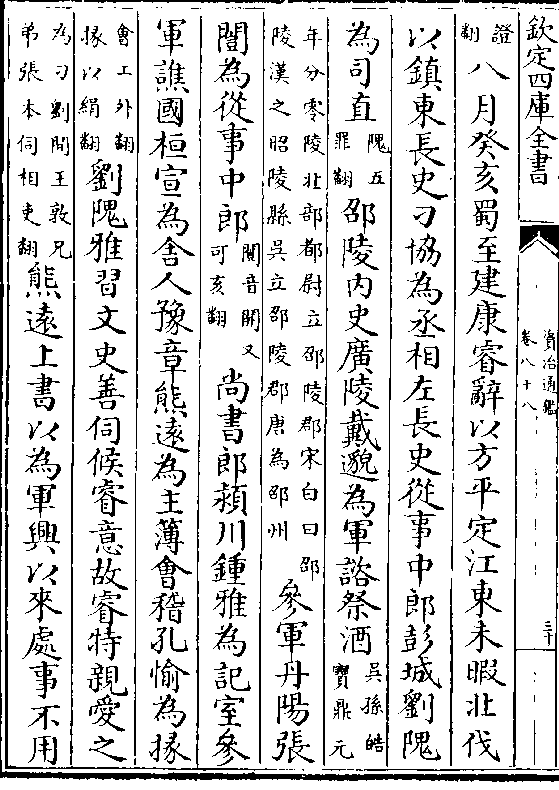 欽定四庫全書
資治通鑑
卷八十八
三十
證翻八月癸亥蜀至建康睿辭以方平定江東未暇北伐
以鎮東長史刁協為丞相左長史從事中郎彭城劉隗
為司直隗五罪翻邵陵内史廣陵戴邈為軍諮祭酒吳孫皓寶鼎元
年分零陵北部都尉立邵陵郡宋白曰邵陵漢之昭陵縣吳立邵陵郡唐為邵州參軍丹陽張
闓為從事中郎闓音開又可亥翻尚書郎潁川鍾雅為記室參
軍譙國桓宣為舍人豫章熊遠為主簿會稽孔愉為掾
會工外翻掾以絹翻劉隗雅習文史善伺候睿意故睿特親愛之
為刁劉間王敦兄弟張本伺相吏翻熊遠上書以為軍興以來處事不用